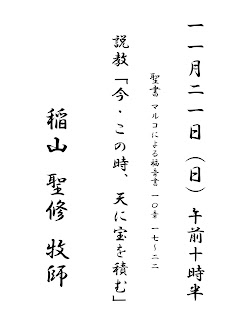 一一月二一日（日）午前十時半
聖書 マルコによる福音書 一〇章 一七～二二
説教「今・この時、天に宝を積む」
稲山 聖修 牧師